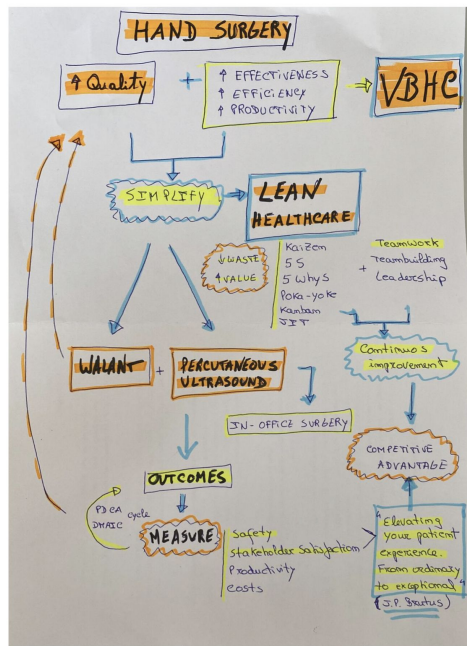 HAND SURGERY
↑ Quality
+
↑ EFFECTIVENESS
↑ EFFICIENCY
↑ PRODUCTIVITY
VBHC
SIMPLIFY
LEAN
HEALTHCARE
↓ WASTE
↑ VALUE
Kaizem
5 S
5 Whys
Poka-yoke
Kanbam
JIT
+
Teamwork
Teambuilding
Leadership
Continuos
improvement
WALANT
+
PERCUTANEOUS
ULTRASOUND
IN-OFFICE SURGERY
COMPETITIVE
ADVANTAGE
OUTCOMES
PDCA
DMAIC
cycle
MEASURE
Safety
Stakeholder Satisfaction
Productivity
Costs
"Elevating
your patient
experience.
From ordinary
to exceptional"